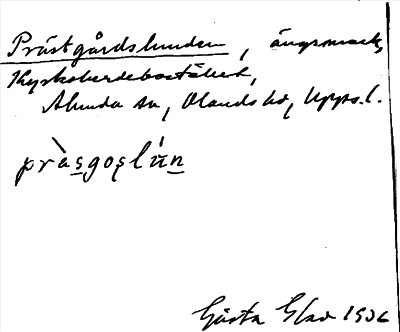 Prästgårdslunden, ängsmark,
Kyrkoherdebostället,
Alunda sn, Olands hd, Upps. l.
pràsgoșlún
Gösta Elav 1932